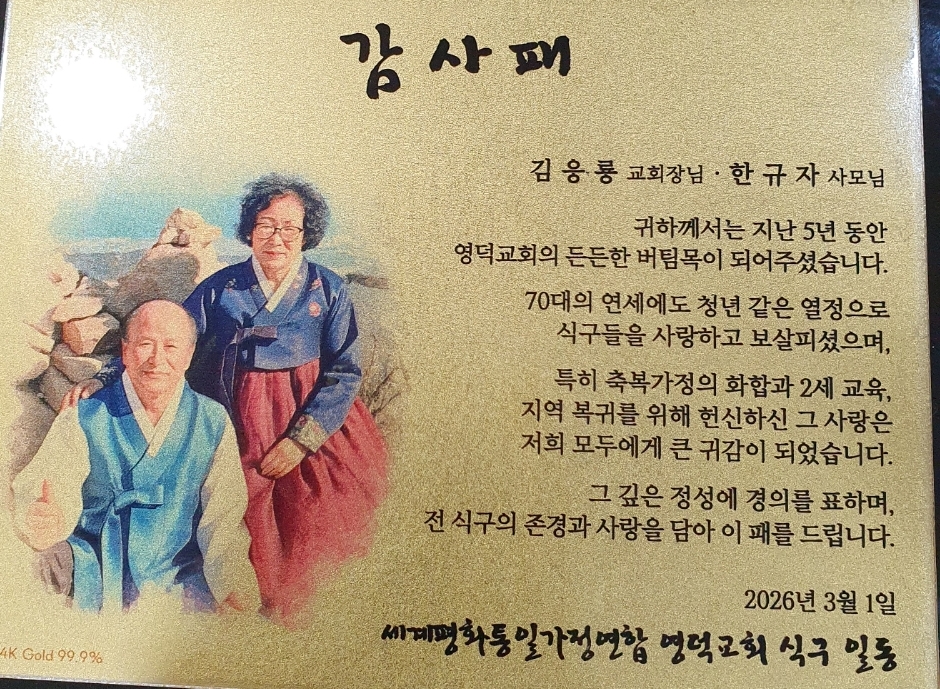 감사패
김응룡 교회장님 · 한규자 사모님
귀하께서는 지난 5년 동안
영덕교회의 든든한 버팀목이 되어주셨습니다.
70대의 연세에도 청년 같은 열정으로
식구들을 사랑하고 보살피셨으며,
특히 축복가정의 화합과 2세 교육,
지역 복귀를 위해 헌신하신 그 사랑은
저희 모두에게 큰 귀감이 되었습니다.
그 깊은 정성에 경의를 표하며,
전 식구의 존경과 사랑을 담아 이 패를 드립니다.
2026년 3월 1일
세계평화통일가정연합 영덕교회 식구 일동
4K Gold 99.9%